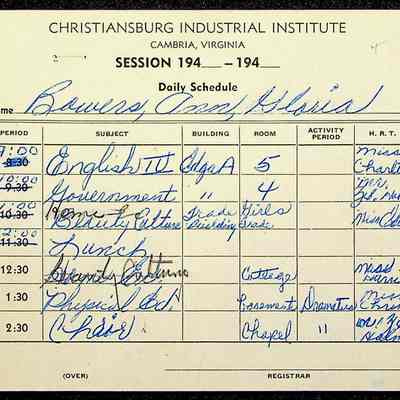 CHRISTIANSBURG INDUSTRIAL INSTITUTE
CAMBRIA, VIRGINIA
SESSION 194 — 194
Daily Schedule
me Bowers, Ann, Gloria
PERIOD SUBJECT BUILDING ROOM ACTIVITY PERIOD H. R. T.
9:00 8:30 English IV Edga A 5 Miss Charl
10:00 9:30 Government " 4 Mr.
11:00 10:30 Home Ec Beauty Culture Trade Building Girls Trade Miss
12:00 11:30 Lunch
12:30 Beauty Culture Cottage Miss
1:30 Physical Ed. Basement Dramatics Miss
2:30 Choir Chapel "
(OVER) REGISTRAR